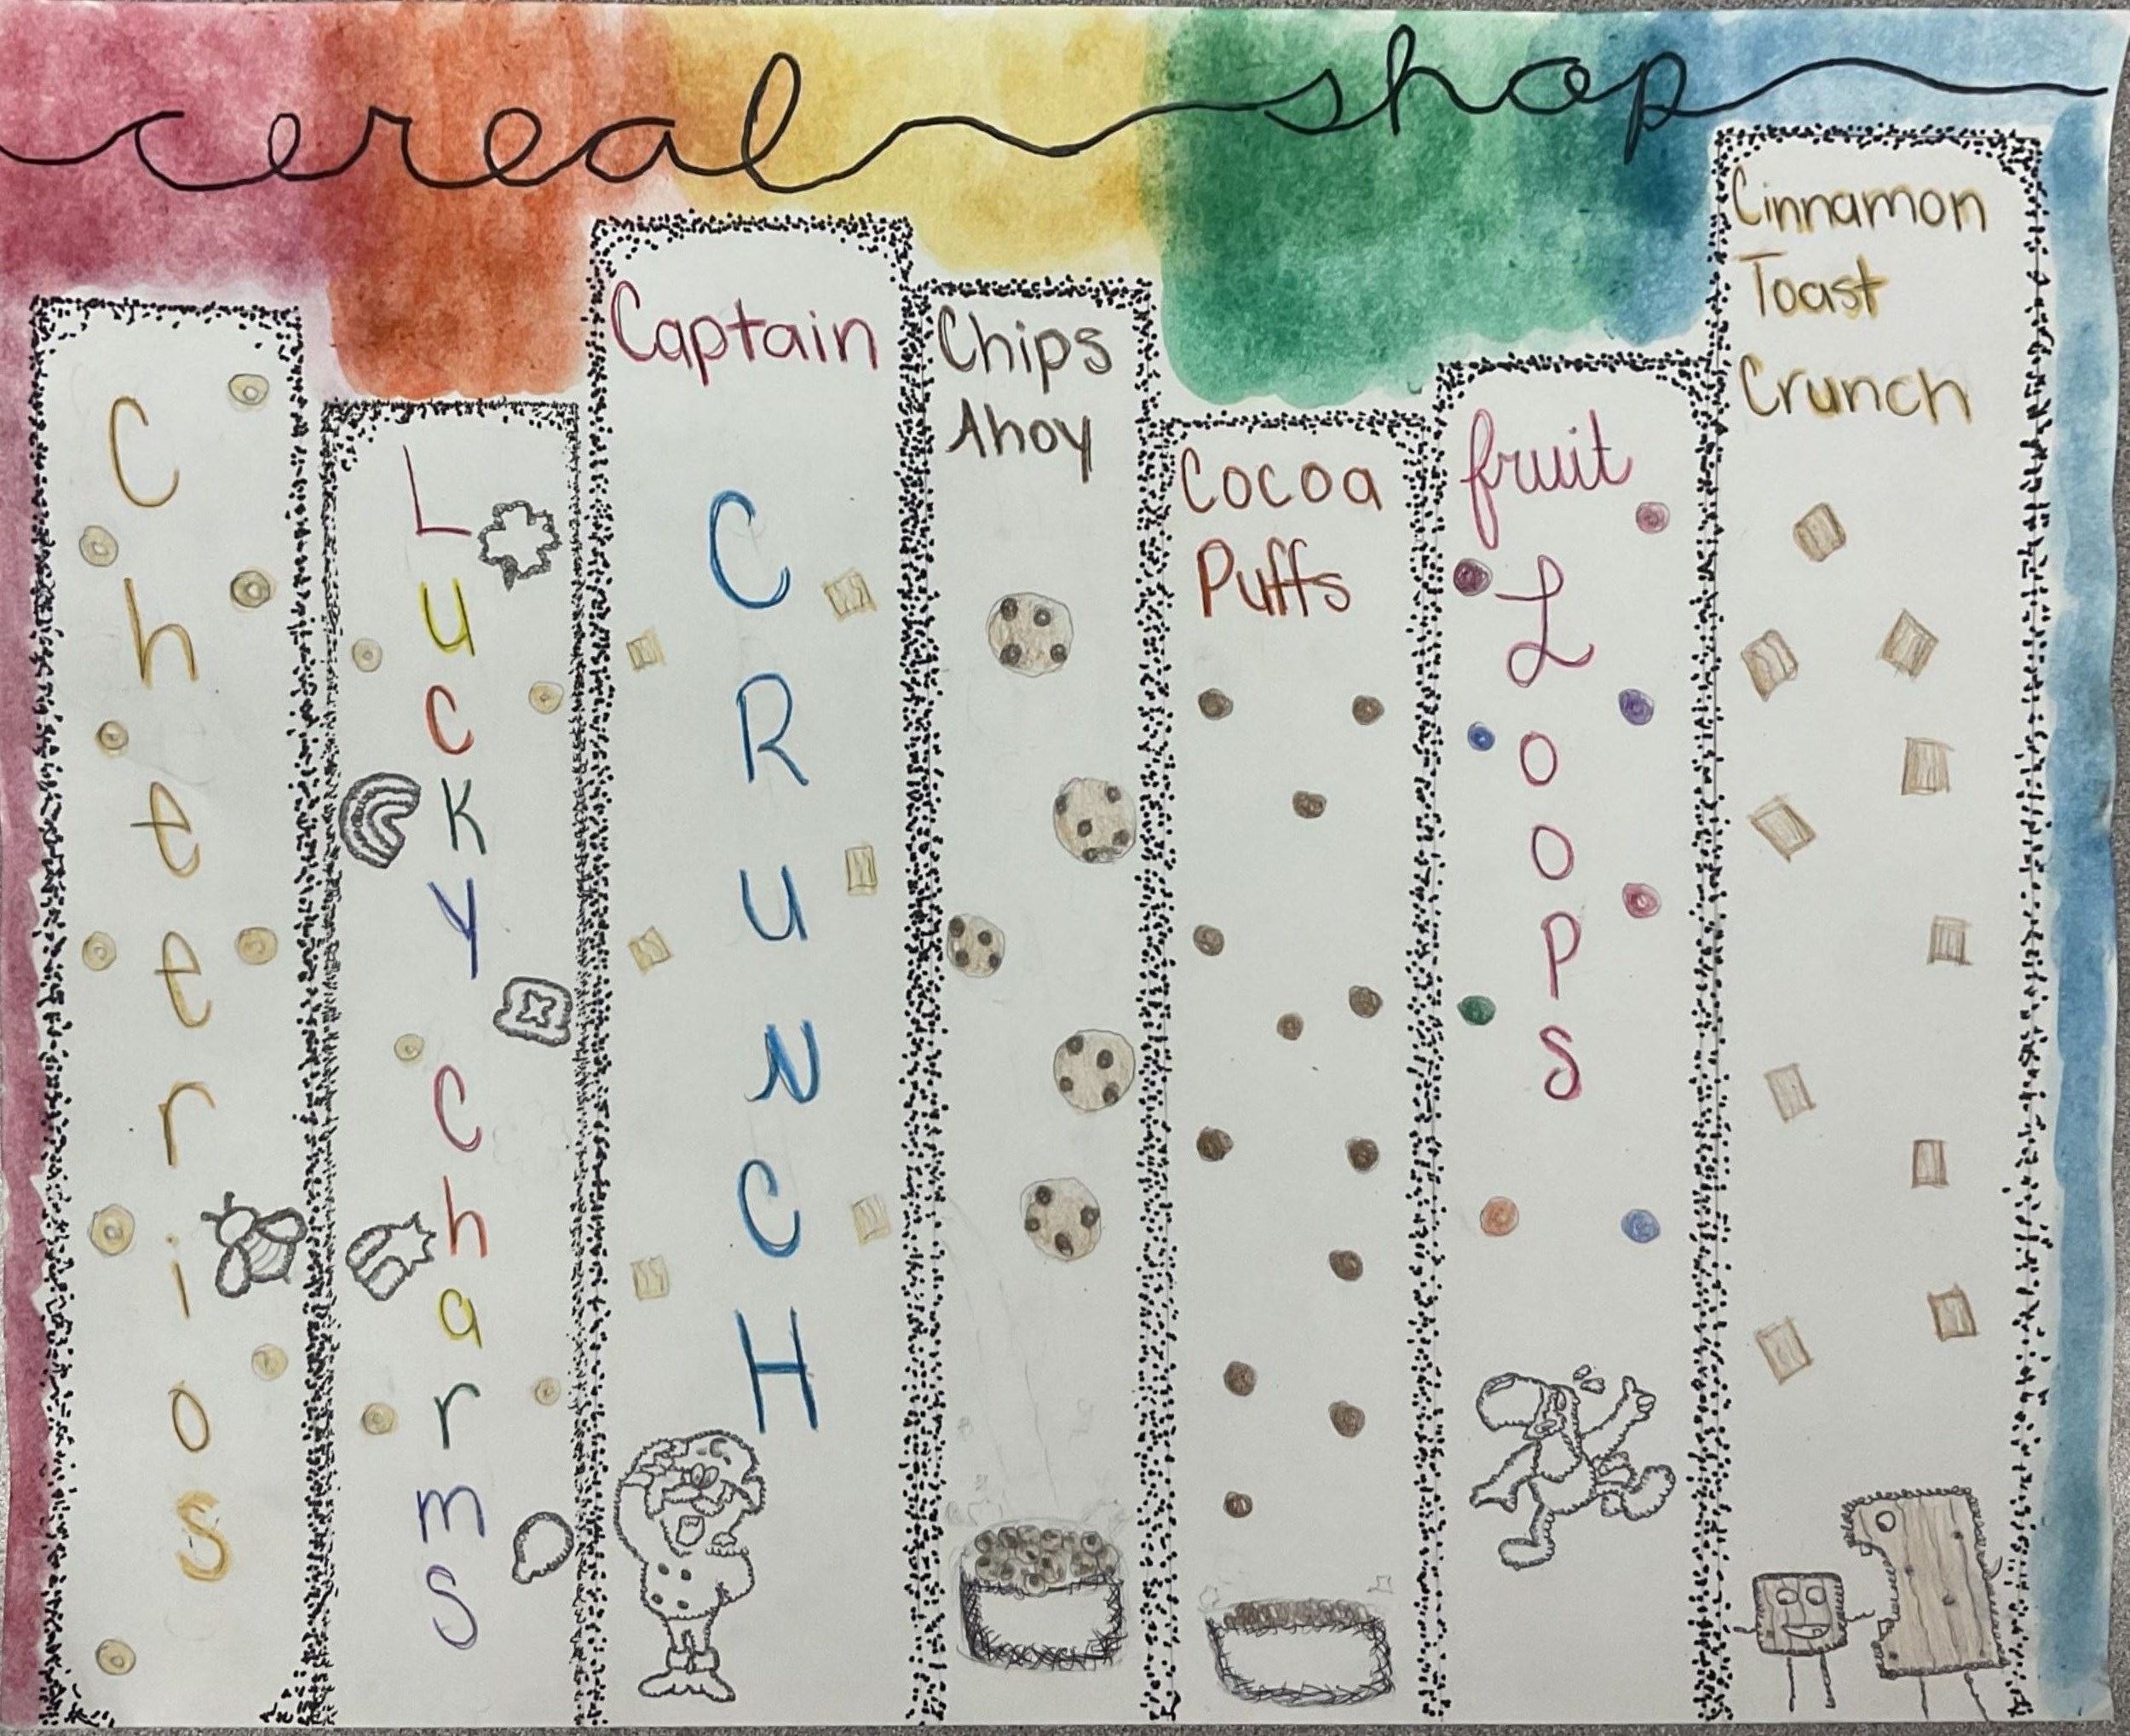 cereal shop
Cheerios
Lucky
Charms
Captain
CRUNCH
Chips
Ahoy
Cocoa
Puffs
fruit
Loops
Cinnamon
Toast
Crunch